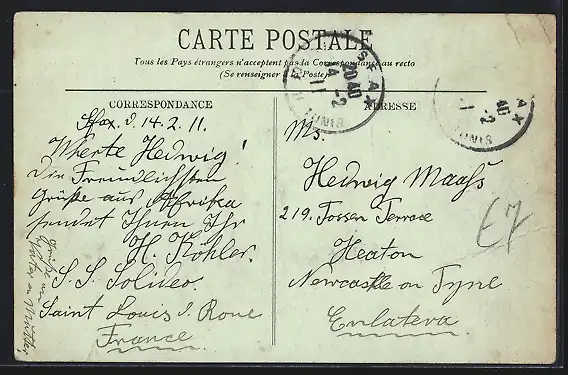 CARTE POSTALE
Tous les Pays étrangers n'acceptent pas la Correspondance au recto
(Se renseigner à la Poste)
CORRESPONDANCE
Sfax. d. 14. 2. 11.
Wherte Hedwig!
Die Freundlichsten
Grüße aus Afrika
sendet Ihnen Ihr
H. Köhler.
S. S. Solideo.
Saint Louis d. Rone
France.
ADRESSE
Ms.
Hedwig Maaß
219. Tossen Terrace
Heaton
Newcastle on Tyne
Enlatera.
E7
SFAX
20 40
14 -2
11
TUNIS
AX
40
-2
TUNIS